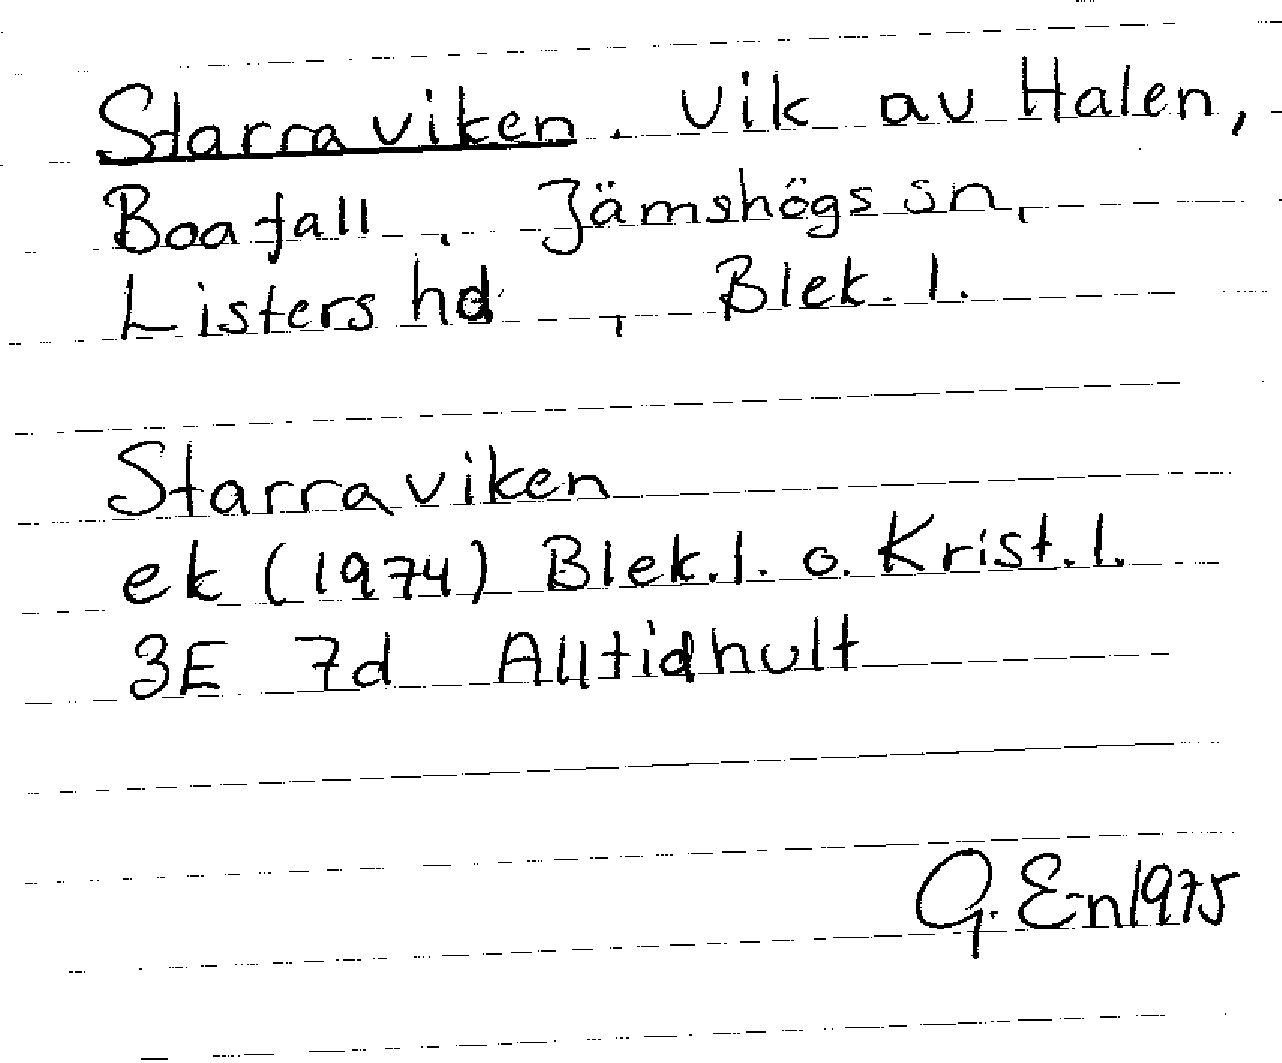 Starraviken. Vik av Halen,
Boafall, Jämshögs sn,
Listers hd, Blek. l.
Starraviken
ek (1974) Blek. l. o. Krist. l.
3E 7d Alltidhult
G. E-n 1975